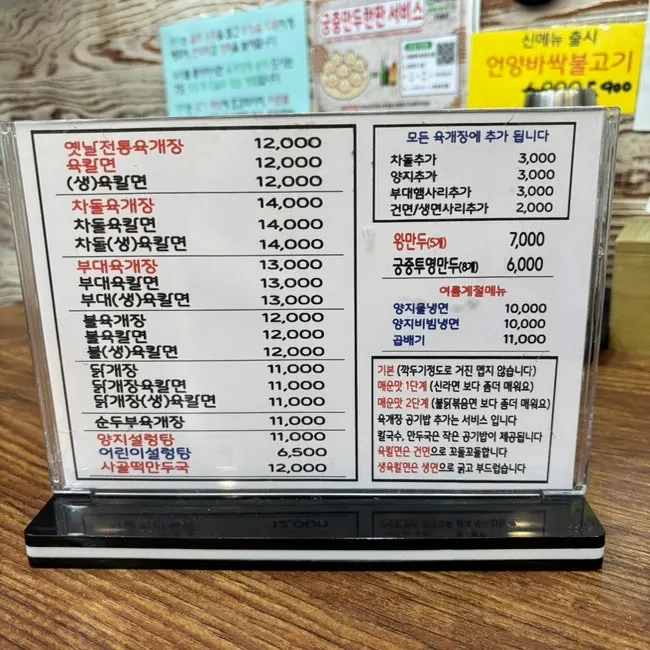 궁중만두한판 서비스
신메뉴 출시
언양바싹불고기
옛날전통육개장 12,000
육칼면 12,000
(생)육칼면 12,000
차돌육개장 14,000
차돌육칼면 14,000
차돌(생)육칼면 14,000
부대육개장 13,000
부대육칼면 13,000
부대(생)육칼면 13,000
불육개장 12,000
불육칼면 12,000
불(생)육칼면 12,000
닭개장 11,000
닭개장육칼면 11,000
닭개장(생)육칼면 11,000
순두부육개장 11,000
양지설렁탕 11,000
어린이설렁탕 6,500
사골떡만두국 12,000
모든 육개장에 추가 됩니다
차돌추가 3,000
양지추가 3,000
부대햄사리추가 3,000
건면/생면사리추가 2,000
왕만두(5개) 7,000
궁중투명만두(8개) 6,000
여름계절메뉴
양지물냉면 10,000
양지비빔냉면 10,000
곱배기 11,000
기본 (깍두기정도로 거진 맵지 않습니다)
매운맛 1단계 (신라면 보다 좀더 매워요)
매운맛 2단계 (불닭볶음면 보다 좀더 매워요)
육개장 공기밥 추가는 서비스 입니다
칼국수, 만두국은 작은 공기밥이 제공됩니다
육칼면은 건면으로 꼬들꼬들합니다
생육칼면은 생면으로 굵고 부드럽습니다